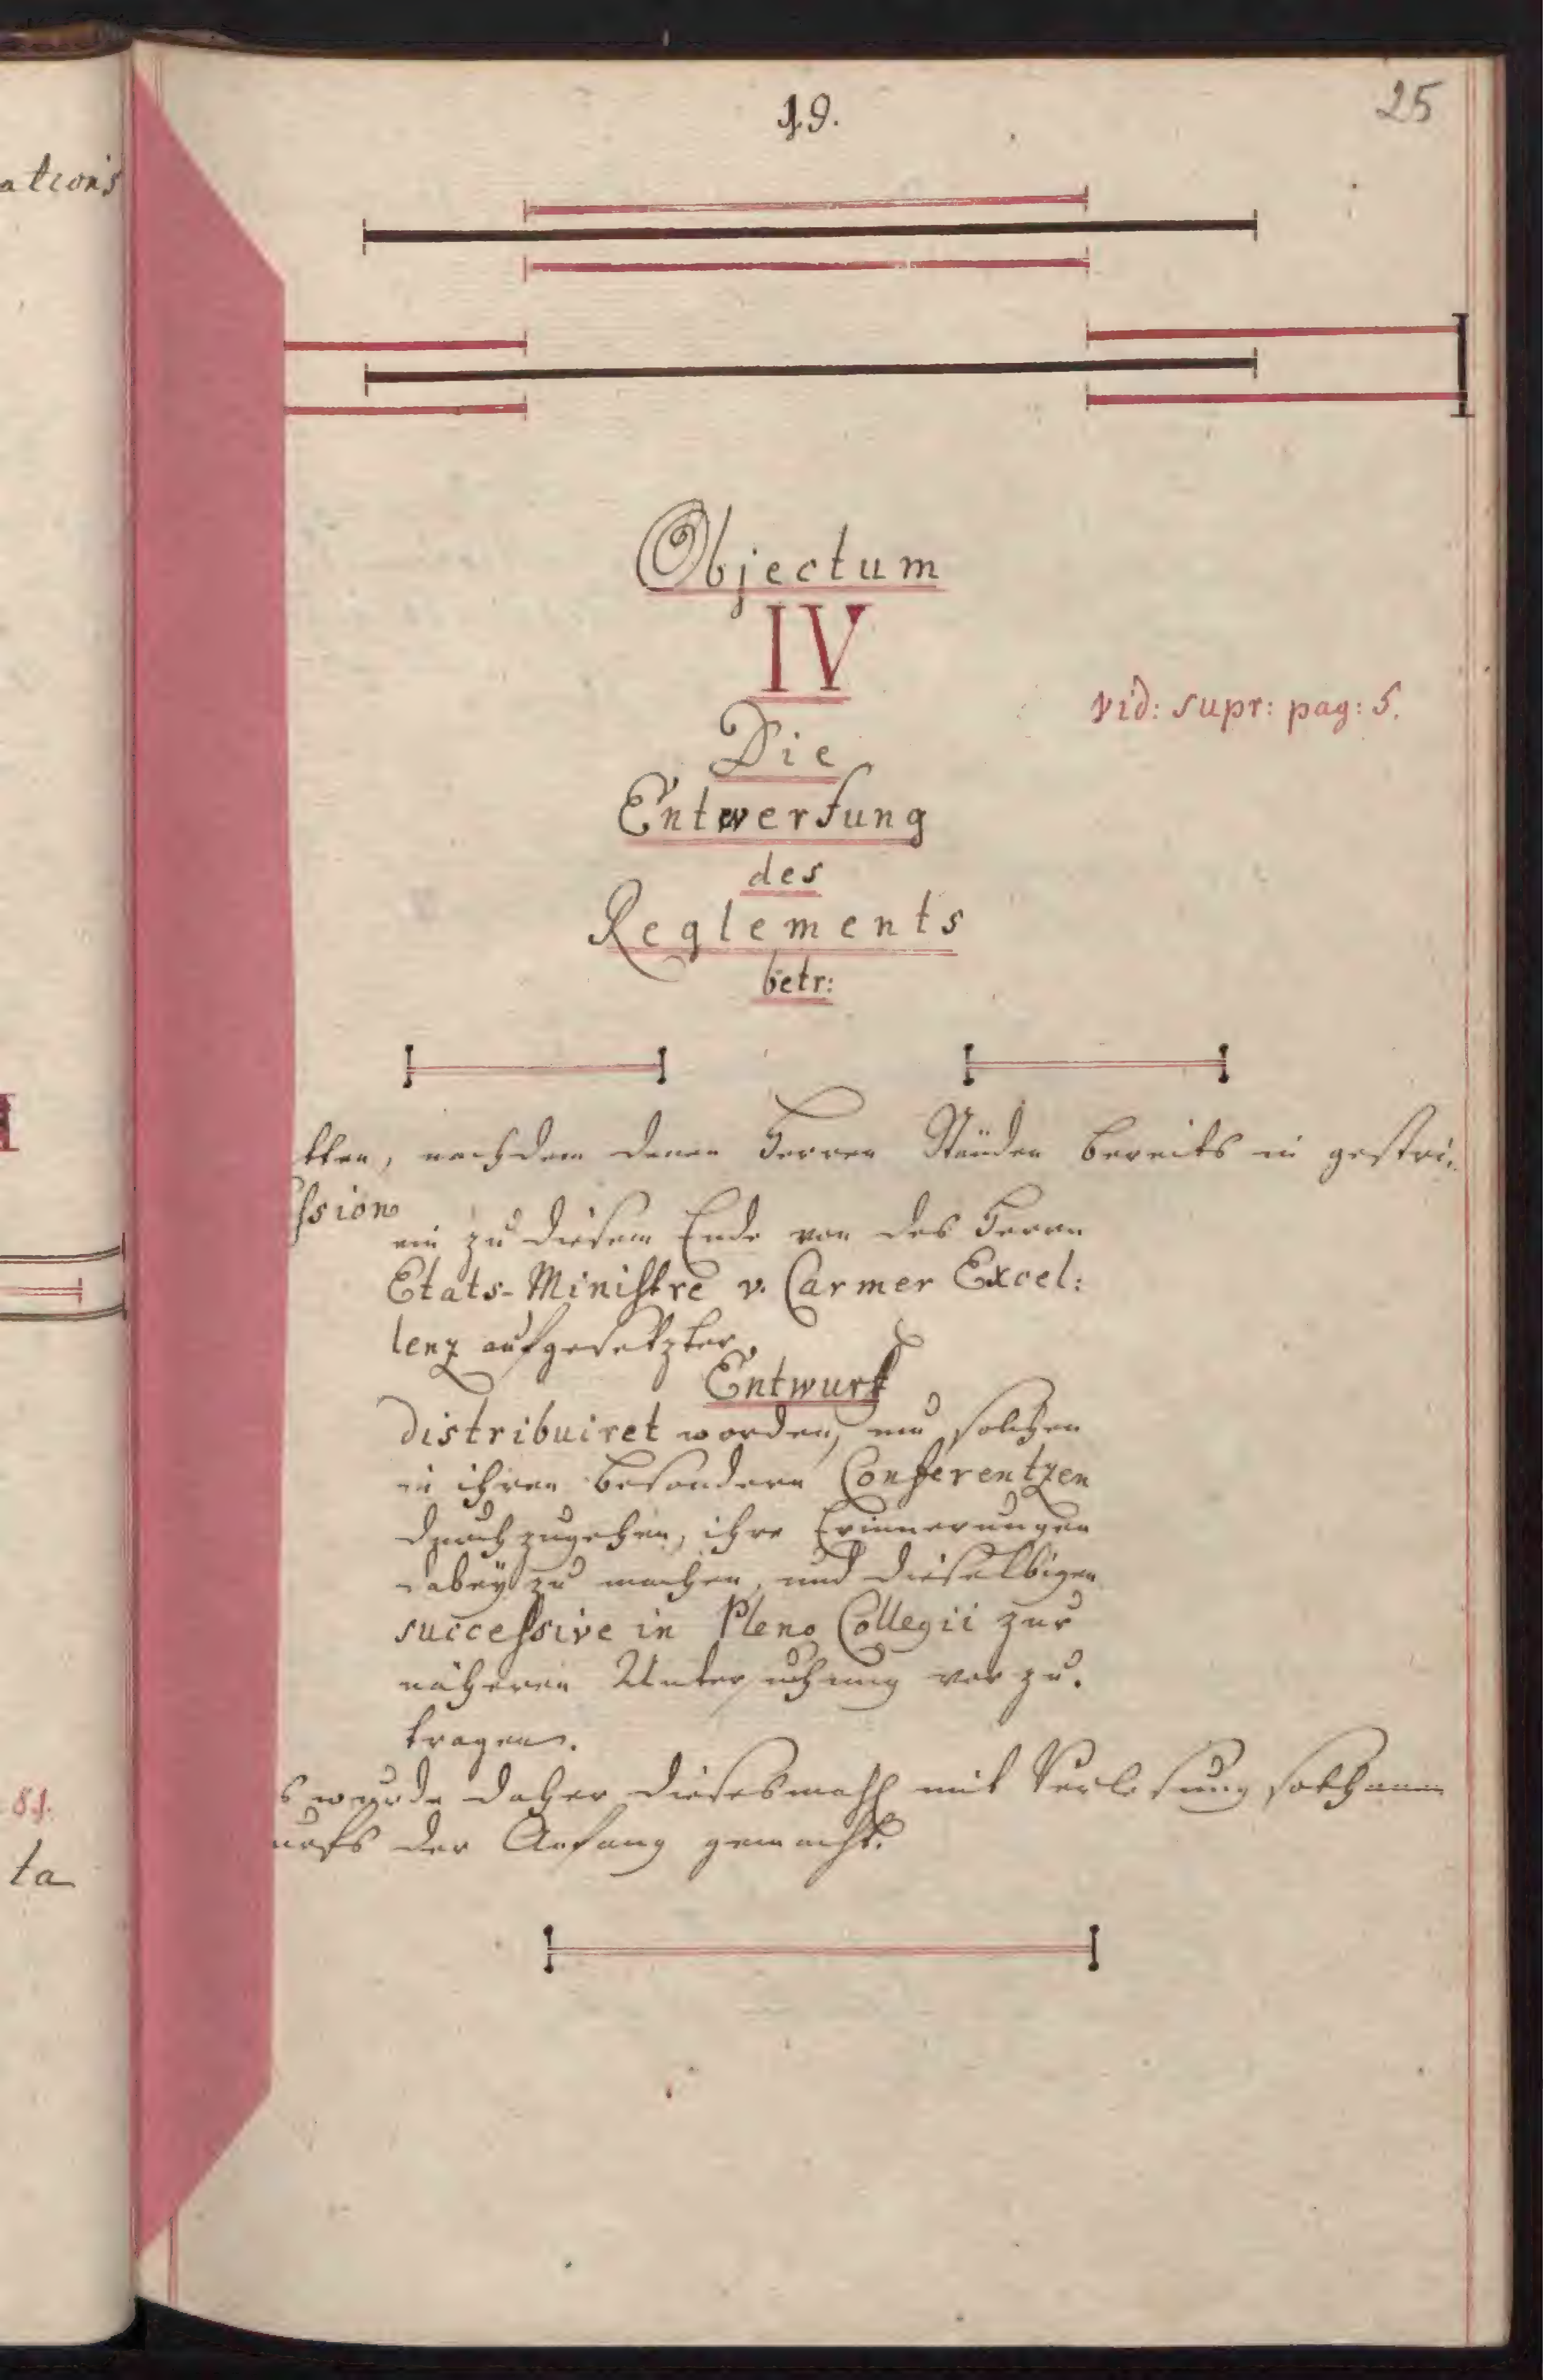 ations
19.
25
Objectum
IV
vid: supr: pag: 5.
Die
Entwerfung
des
Reglements
betr:
tten, nachdem denen Herren Ständen bereits in gestri,
ssion
ein zu diesem Ende von des Herrn
Etats-Ministre v. Carmer Excel:
lenz aufgesetzter
Entwurf
distribuiret worden, um solchen
in ihren besondern Conferentzen
durchzugehen, ihre Erinnerungen
dabey zu machen, und dieselbigen
successive in Pleno Collegii zur
näheren Untersuchung vorzu.
tragen.
s wurde daher diesesmahl mit Verlesung sothanen
urfs der Anfang gemacht.
81.
ta